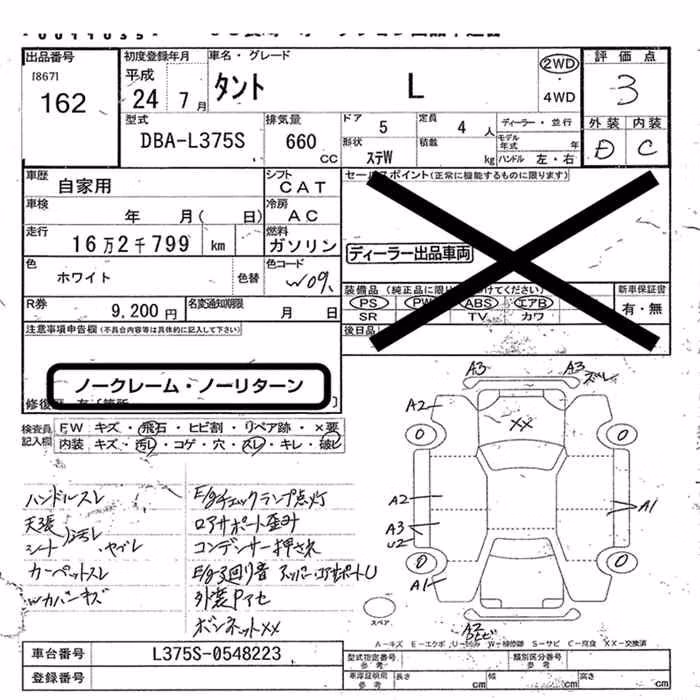 出品番号
[867]
162
初度登録年月
平成
24 7月
車名・グレード
タント L
2WD
4WD
評価点
3
外装 内装
D C
型式
DBA-L375S
排気量
660
CC
ドア 5
定員 4 人
形状 ステW
積載 kg
ディーラー・並行
モデル年式 年
ハンドル 左・右
車歴
自家用
シフト
CAT
車検
年 月( 日)
冷房
AC
走行
16万2千799 km
燃料
ガソリン
色
ホワイト
色替
色コード
W09
R券
9,200円
名変通知期限
月 日
セールスポイント(正常に機能するものに限ります)
ディーラー出品車両
装備品 (純正品に限り
けてください)
PS PW ABS エアB
SR TV カワ
新車保証書
有・無
後日品
注意事項申告欄(不具合内容等は具体的に記入して下さい)
ノークレーム・ノーリターン
検査員記入欄
FW キズ・飛石・ヒビ割・リペア跡・×要
内装 キズ・汚レ・コゲ・穴・スレ・キレ・破レ
ハンドルスレ
天張
シート 汚レ・ヤブレ
カーペットスレ
Wカバーキズ
E/gチェックランプ点灯
ロアサポート歪ミ
コンデンサー押され
E/g廻り音 アッパー・ロアサポートU
外装Pアセ
ボンネットXX
A3
A3 ズレ
A2
XX
0
0
A2
A3
U2
A1
0
0
A1
A2
スペア
A-キズ E-エクボ U-凹み W-補修跡 S-サビ C-腐食 XX-交換済
車台番号
L375S-0548223
登録番号
型式指定番号
参考
類別区分番号
参考
車庫証明用
参考
長さ cm
幅 cm
高さ cm